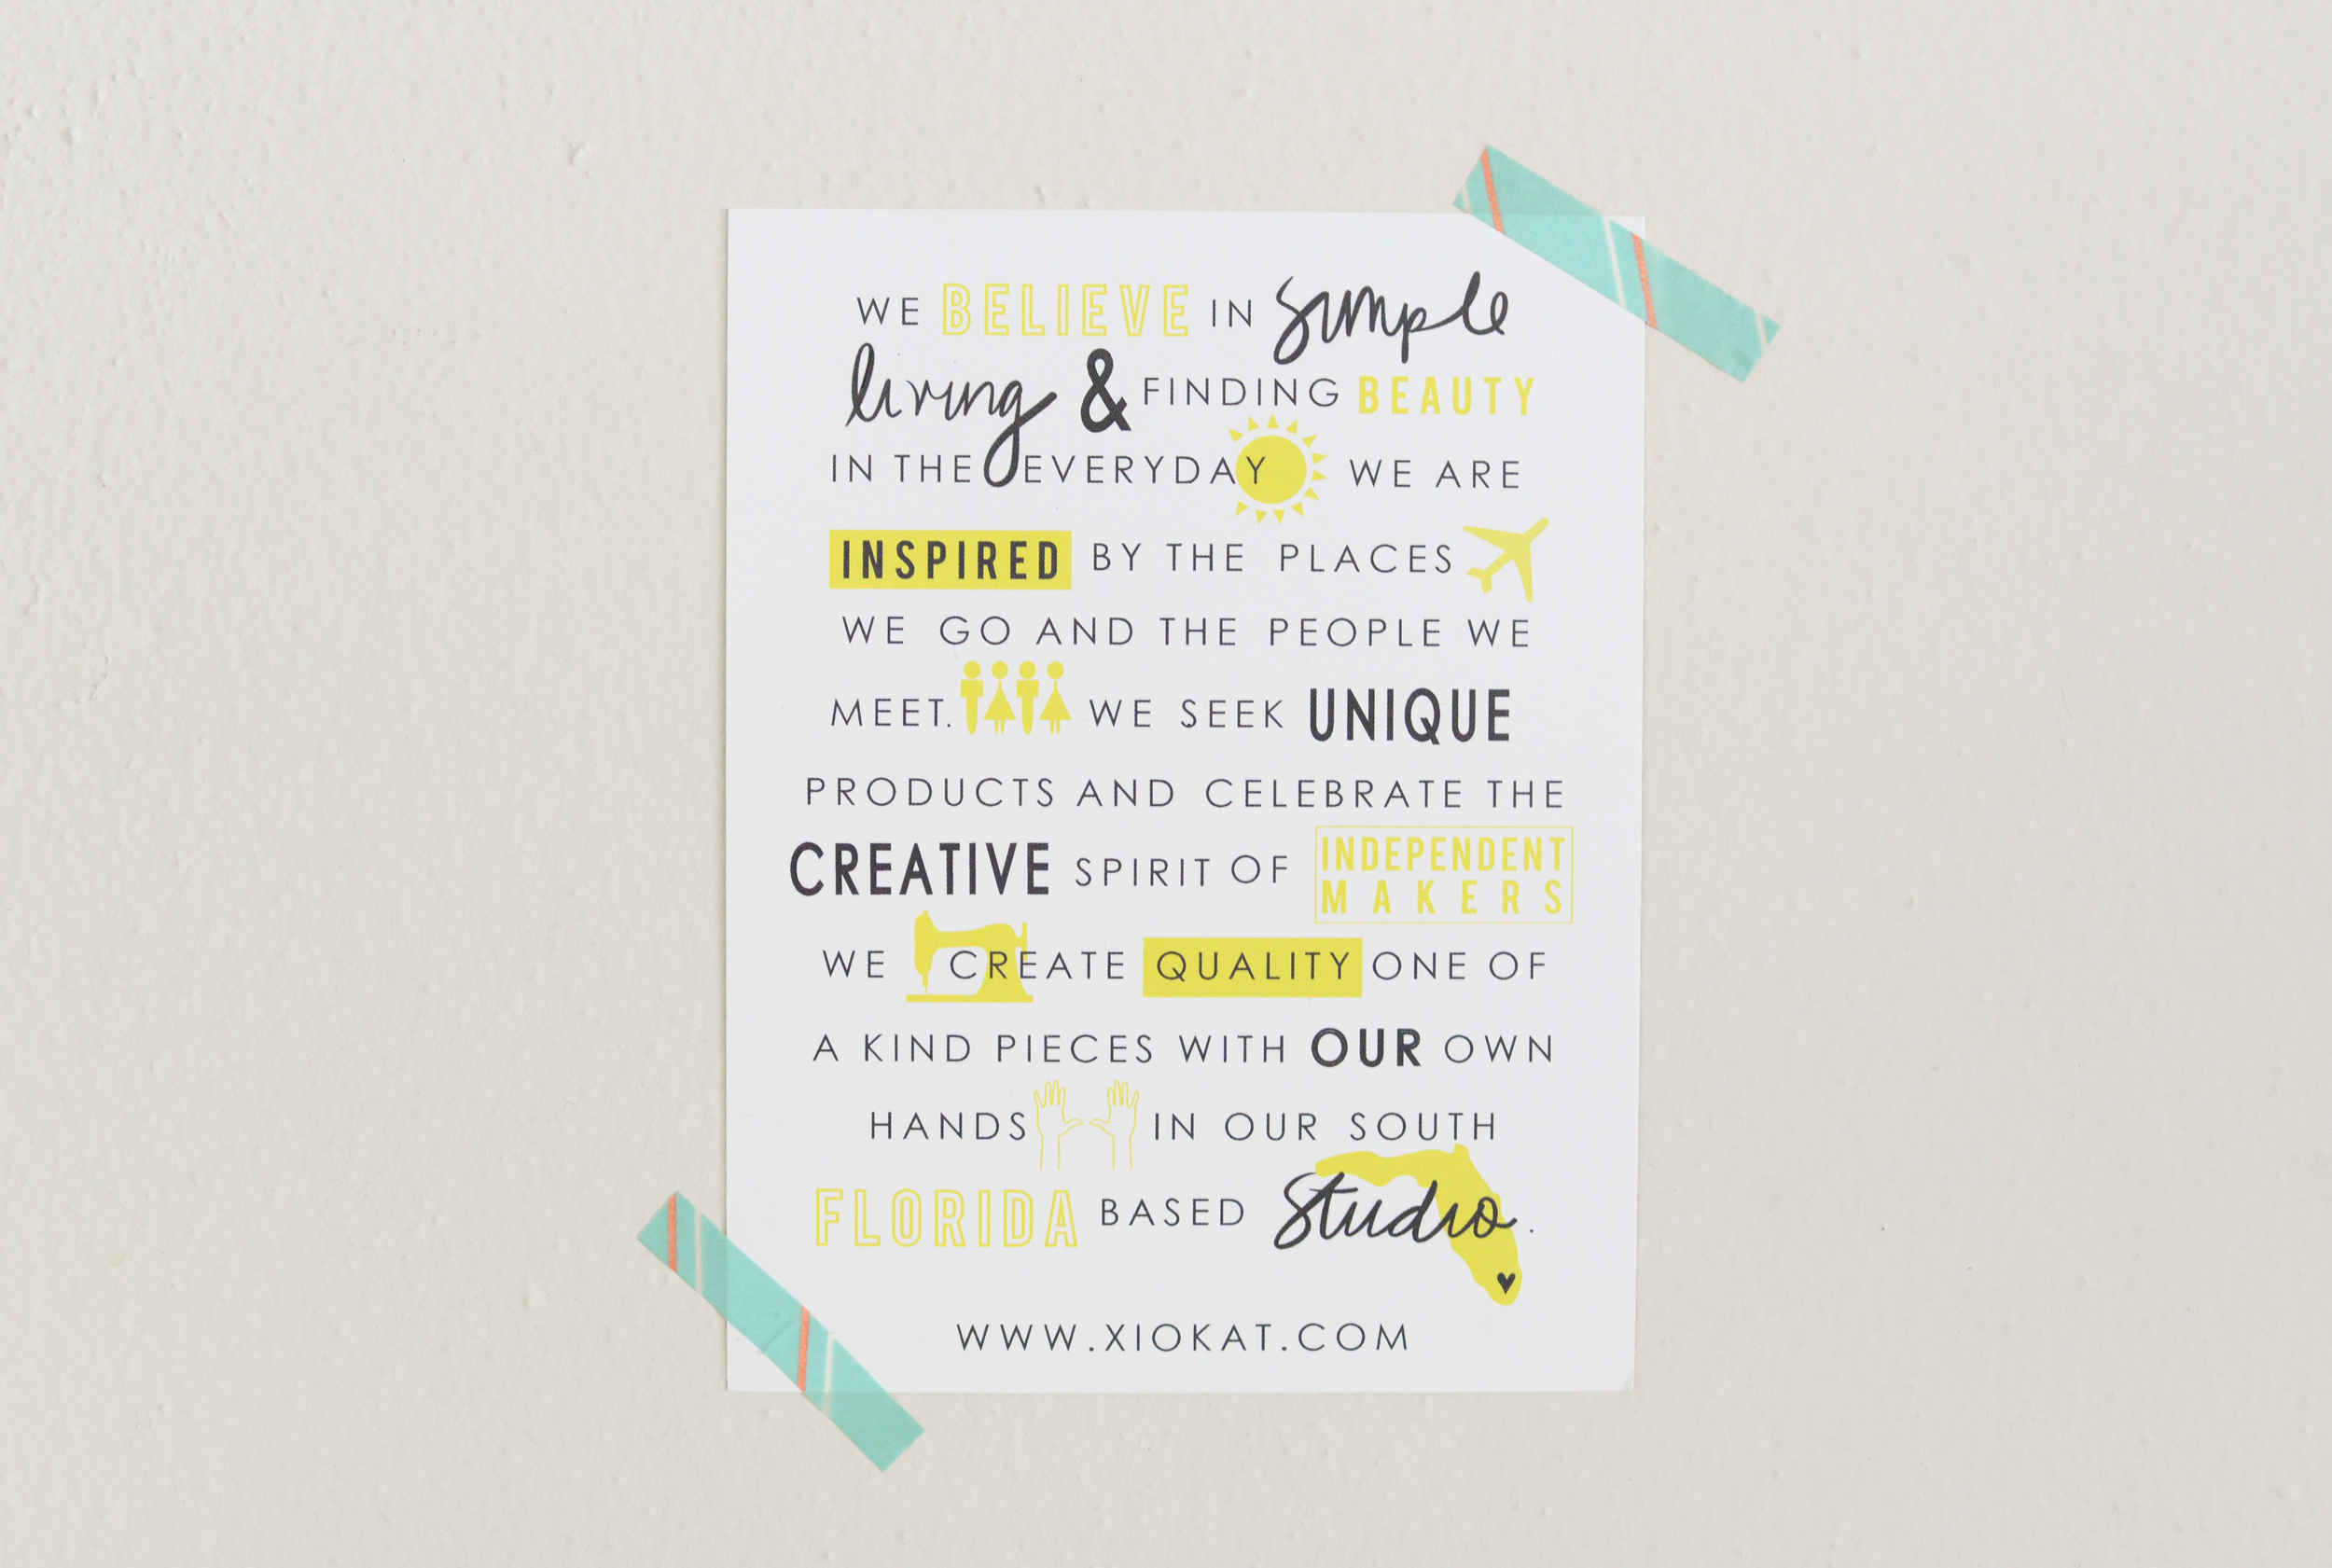 WE BELIEVE IN simple
living & FINDING BEAUTY
IN THE EVERYDAY WE ARE
INSPIRED BY THE PLACES
WE GO AND THE PEOPLE WE
MEET. WE SEEK UNIQUE
PRODUCTS AND CELEBRATE THE
CREATIVE SPIRIT OF INDEPENDENT MAKERS
WE CREATE QUALITY ONE OF
A KIND PIECES WITH OUR OWN
HANDS IN OUR SOUTH
FLORIDA BASED Studio.
WWW.XIOKAT.COM